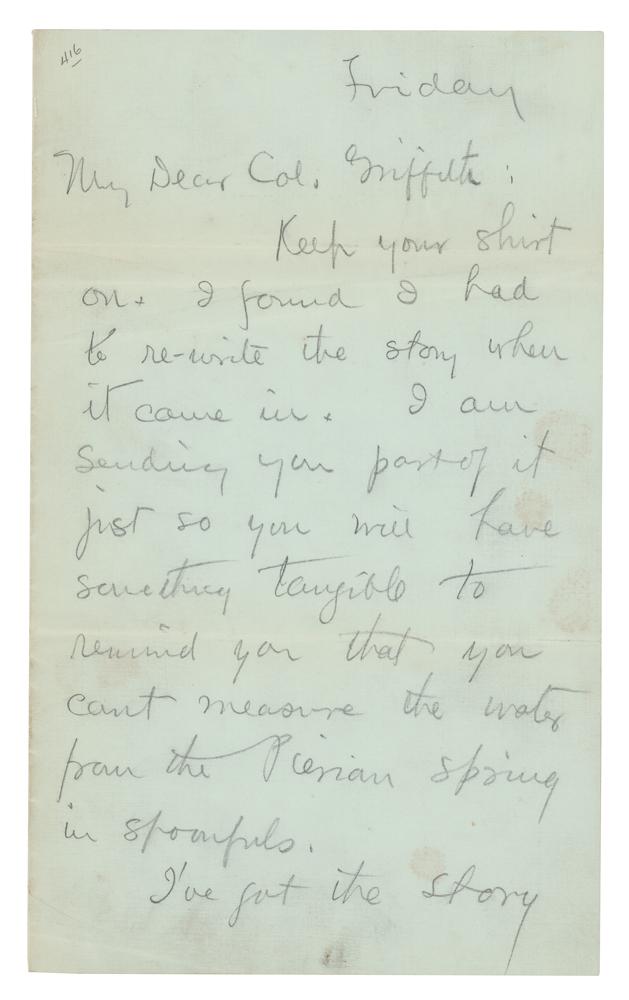 416
Friday
My Dear Col. Griffith:
Keep your shirt
on. I found I had
to re-write the story when
it came in. I am
sending you part of it
just so you will have
something tangible to
remind you that you
can't measure the water
from the Pierian spring
in spoonfuls.
I've got the story